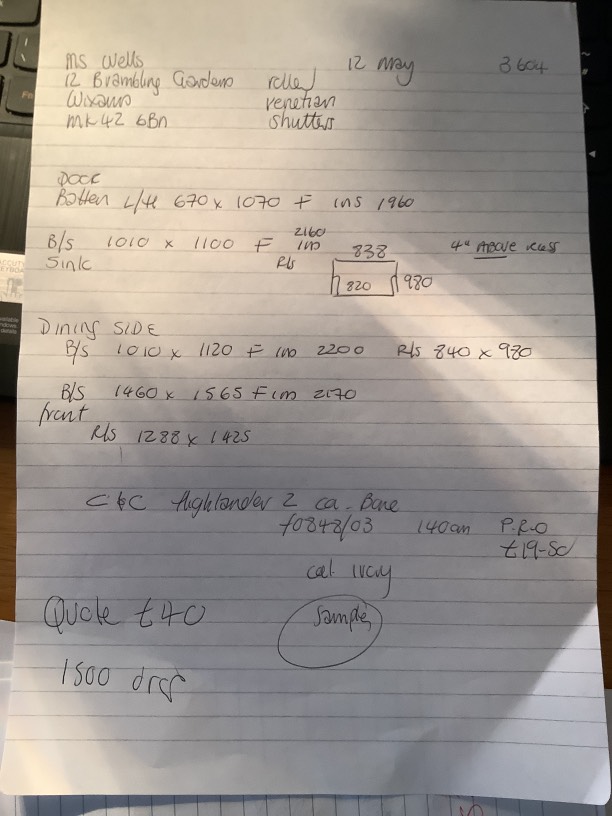 Ms Wells 12 May 3604
12 Brambling Gardens roller
Wixams venetian
MK42 6BN shutters
DOOR
Batten L/H 670 x 1070 F ins 1960
B/S 1010 x 1100 F 2160 ins 838 4" Above recess
Sink R/s 820 980
Dining SIDE
B/S 1010 x 1120 F ins 2200 R/s 840 x 980
B/S 1460 x 1565 F ins 2170
front
R/s 1288 x 1425
C&C Highlander 2 ca. Bone
f0848/03 140cm P.R.O
£19-50
cal ivory
Quote £40 sample
1500 drop